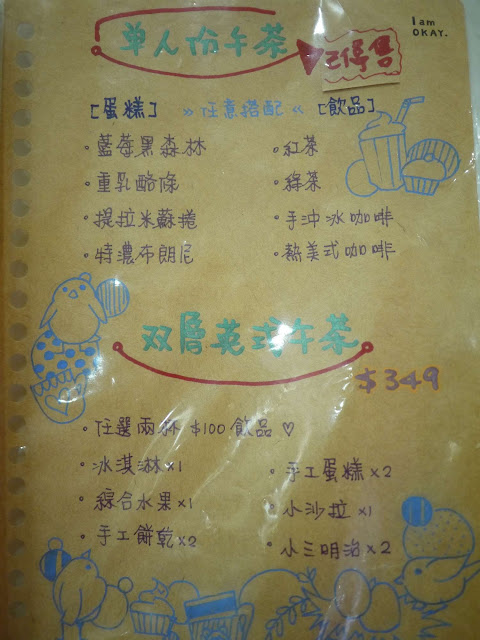 I am
OKAY.
单人份午茶
已停售
[蛋糕] » 任意搭配 « [飲品]
・藍莓黑森林 ・紅茶
・重乳酪條 ・綠茶
・提拉米蘇捲 ・手沖冰咖啡
・特濃布朗尼 ・熱美式咖啡
双層英式午茶
$349
・任選兩杯 $100 飲品 ♡
・冰淇淋x1 ・手工蛋糕x2
・綜合水果x1 ・小沙拉x1
・手工餅乾x2 ・小三明治x2